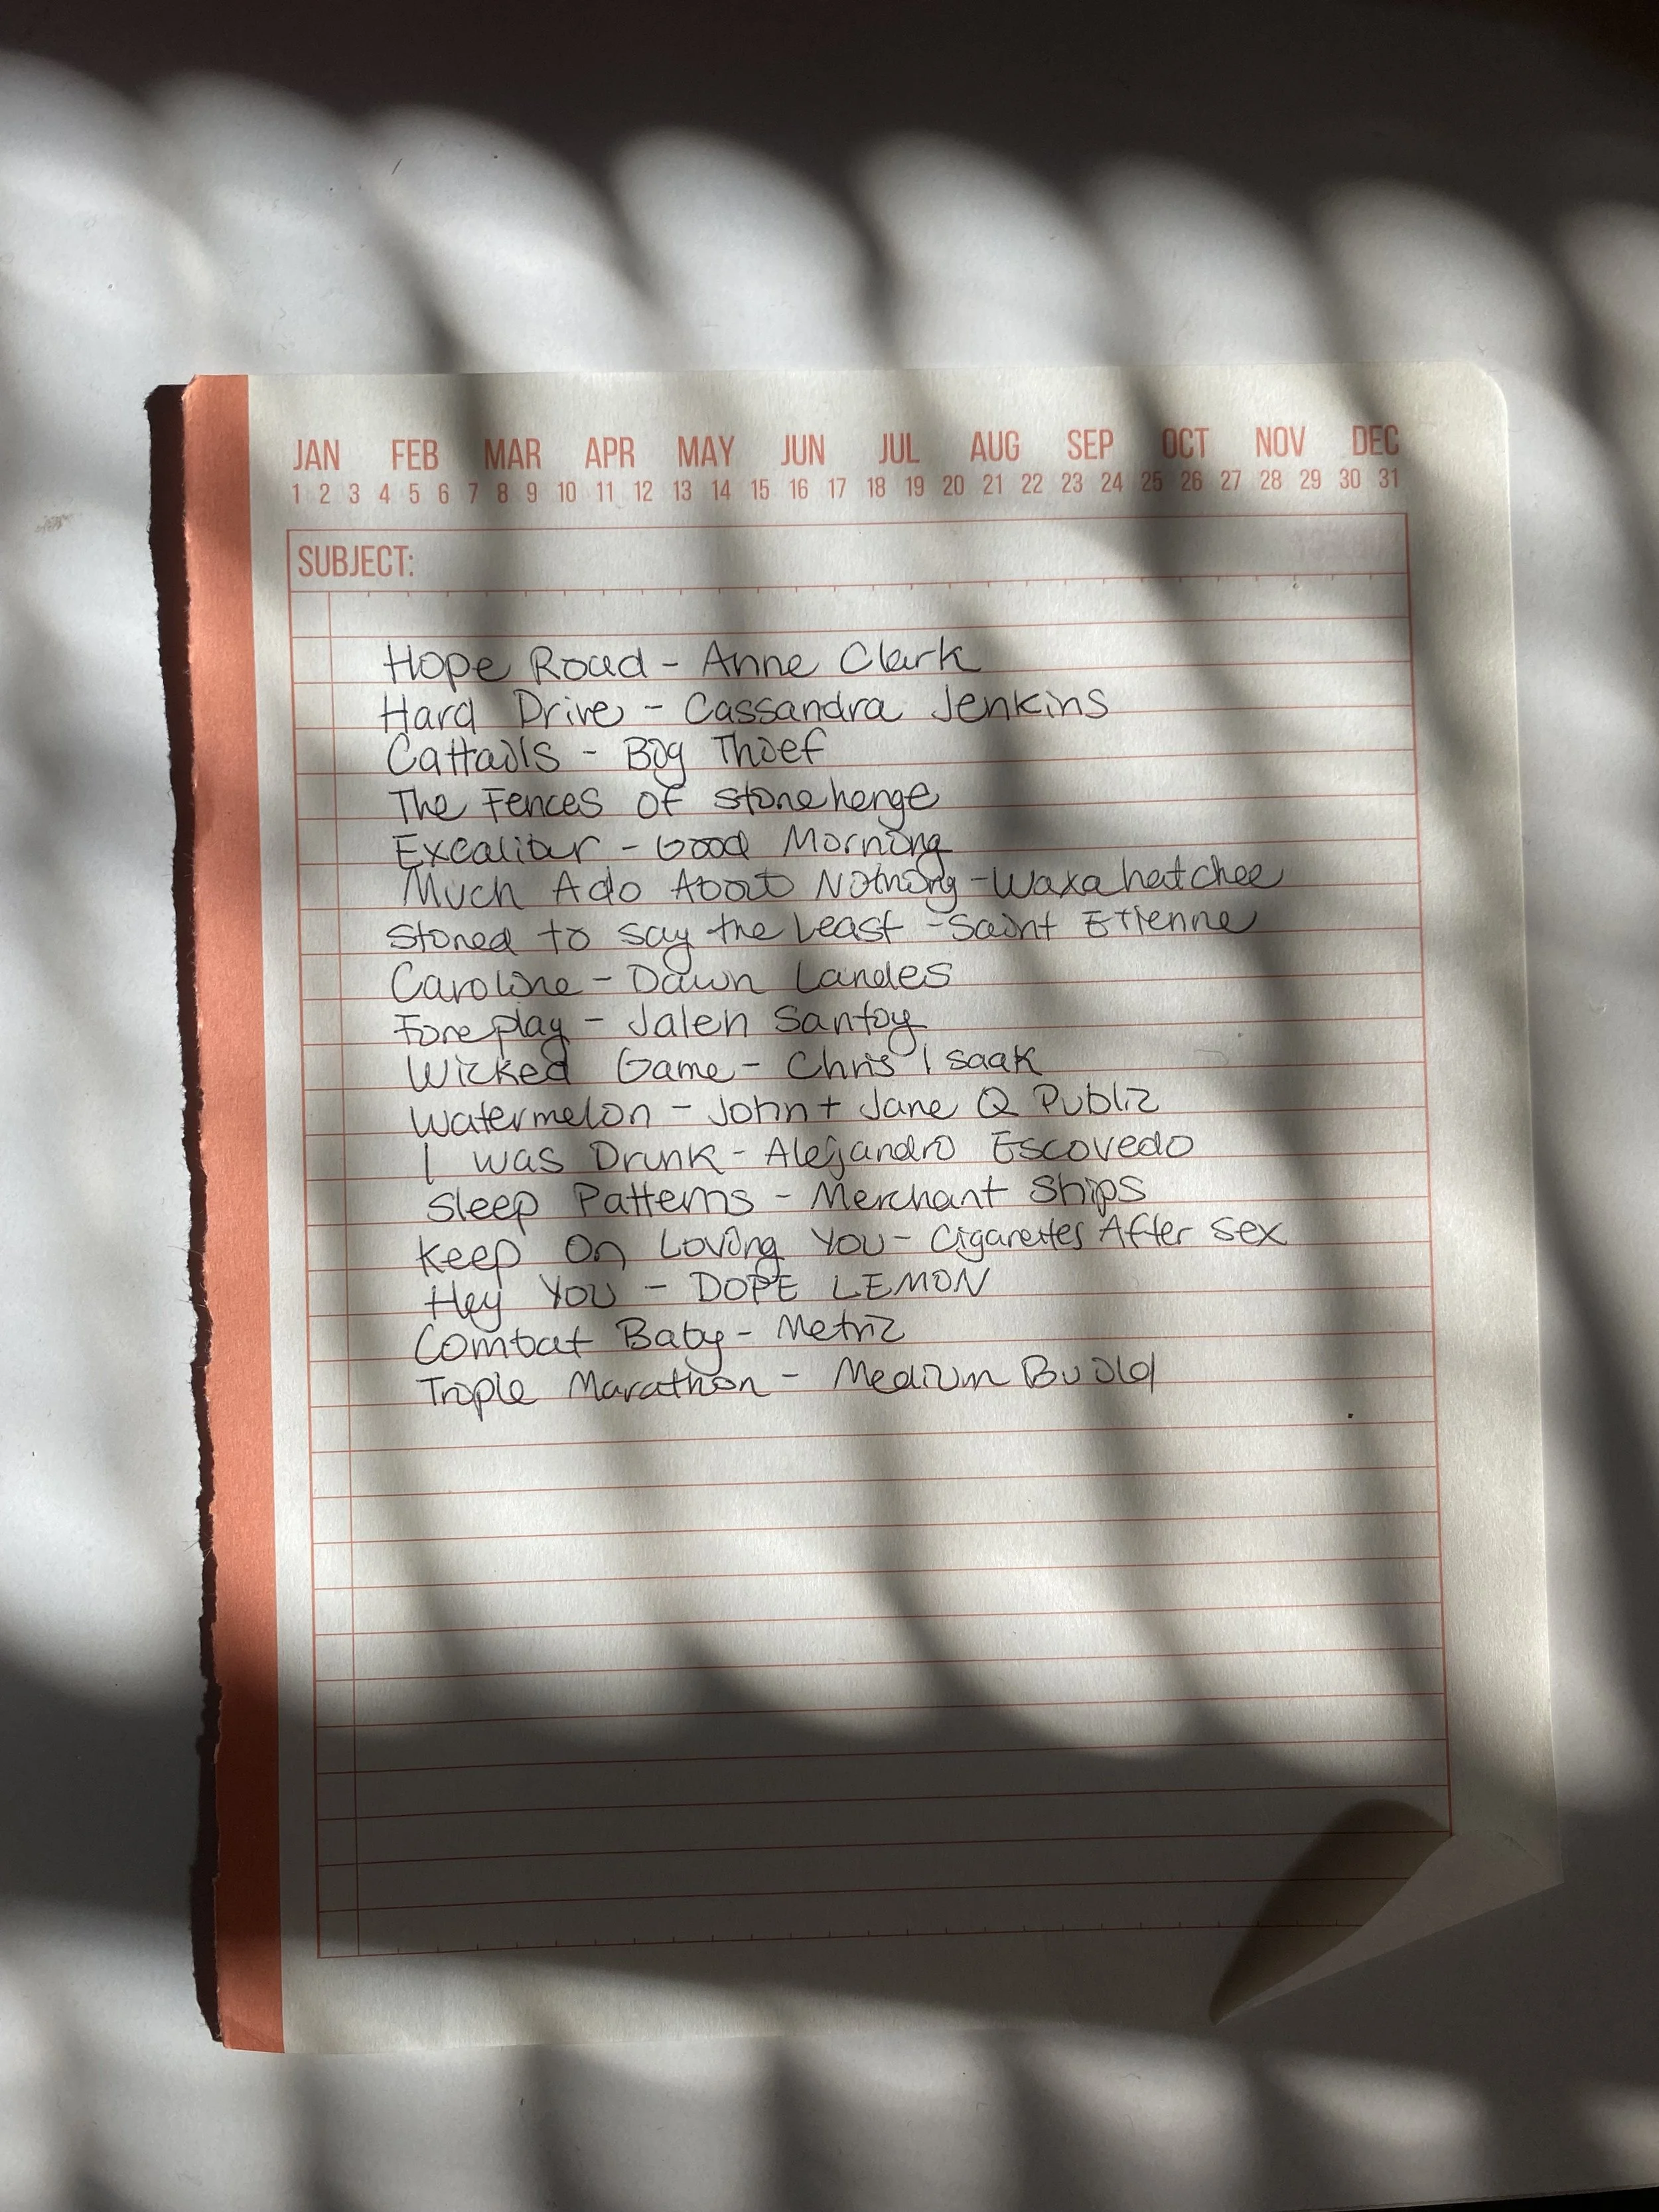 JAN FEB MAR APR MAY JUN JUL AUG SEP OCT NOV DEC
1 2 3 4 5 6 7 8 9 10 11 12 13 14 15 16 17 18 19 20 21 22 23 24 25 26 27 28 29 30 31
SUBJECT:
Hope Road - Anne Clark
Hard Drive - Cassandra Jenkins
Cattails - Big Thief
The Fences of Stonehenge
Excalibur - Good Morning
Much Ado About Nothing - Waxahatchee
Stoned to say the Least - Saint Etienne
Caroline - Dawn Landes
Foreplay - Jalen Santoy
Wicked Game - Chris Isaak
Watermelon - John + Jane Q Public
I was Drunk - Alejandro Escovedo
Sleep Patterns - Merchant Ships
Keep On Loving You - Cigarettes After Sex
Hey You - DOPE LEMON
Combat Baby - Metric
Triple Marathon - Medium Build